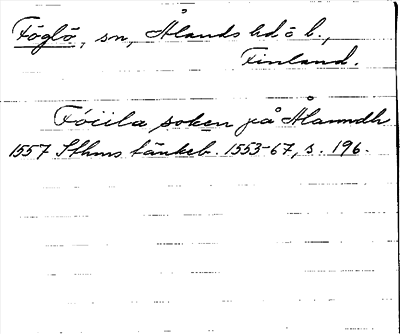 Föglö, sn, Ålands hd o l.,
Finland.
Föciila soken på Ålanndh
1557 Sthms tänkeb. 1553-67, s. 196.